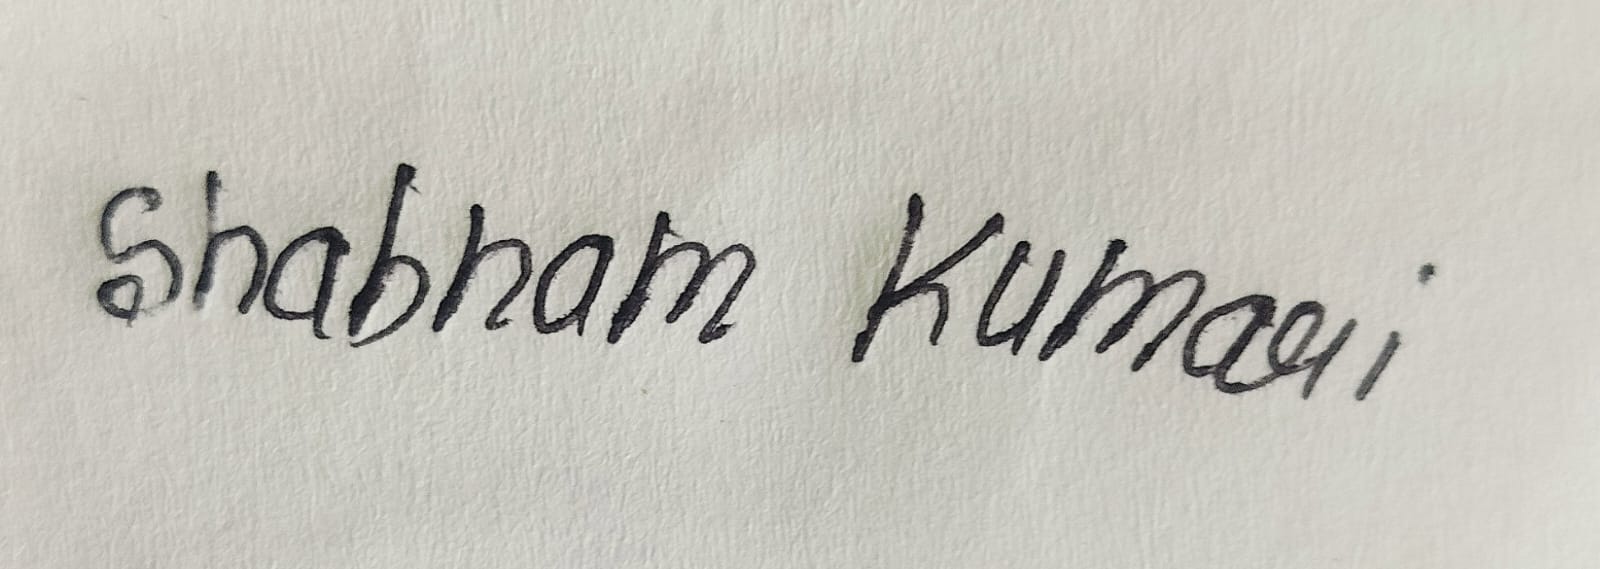 Shabnam Kumari